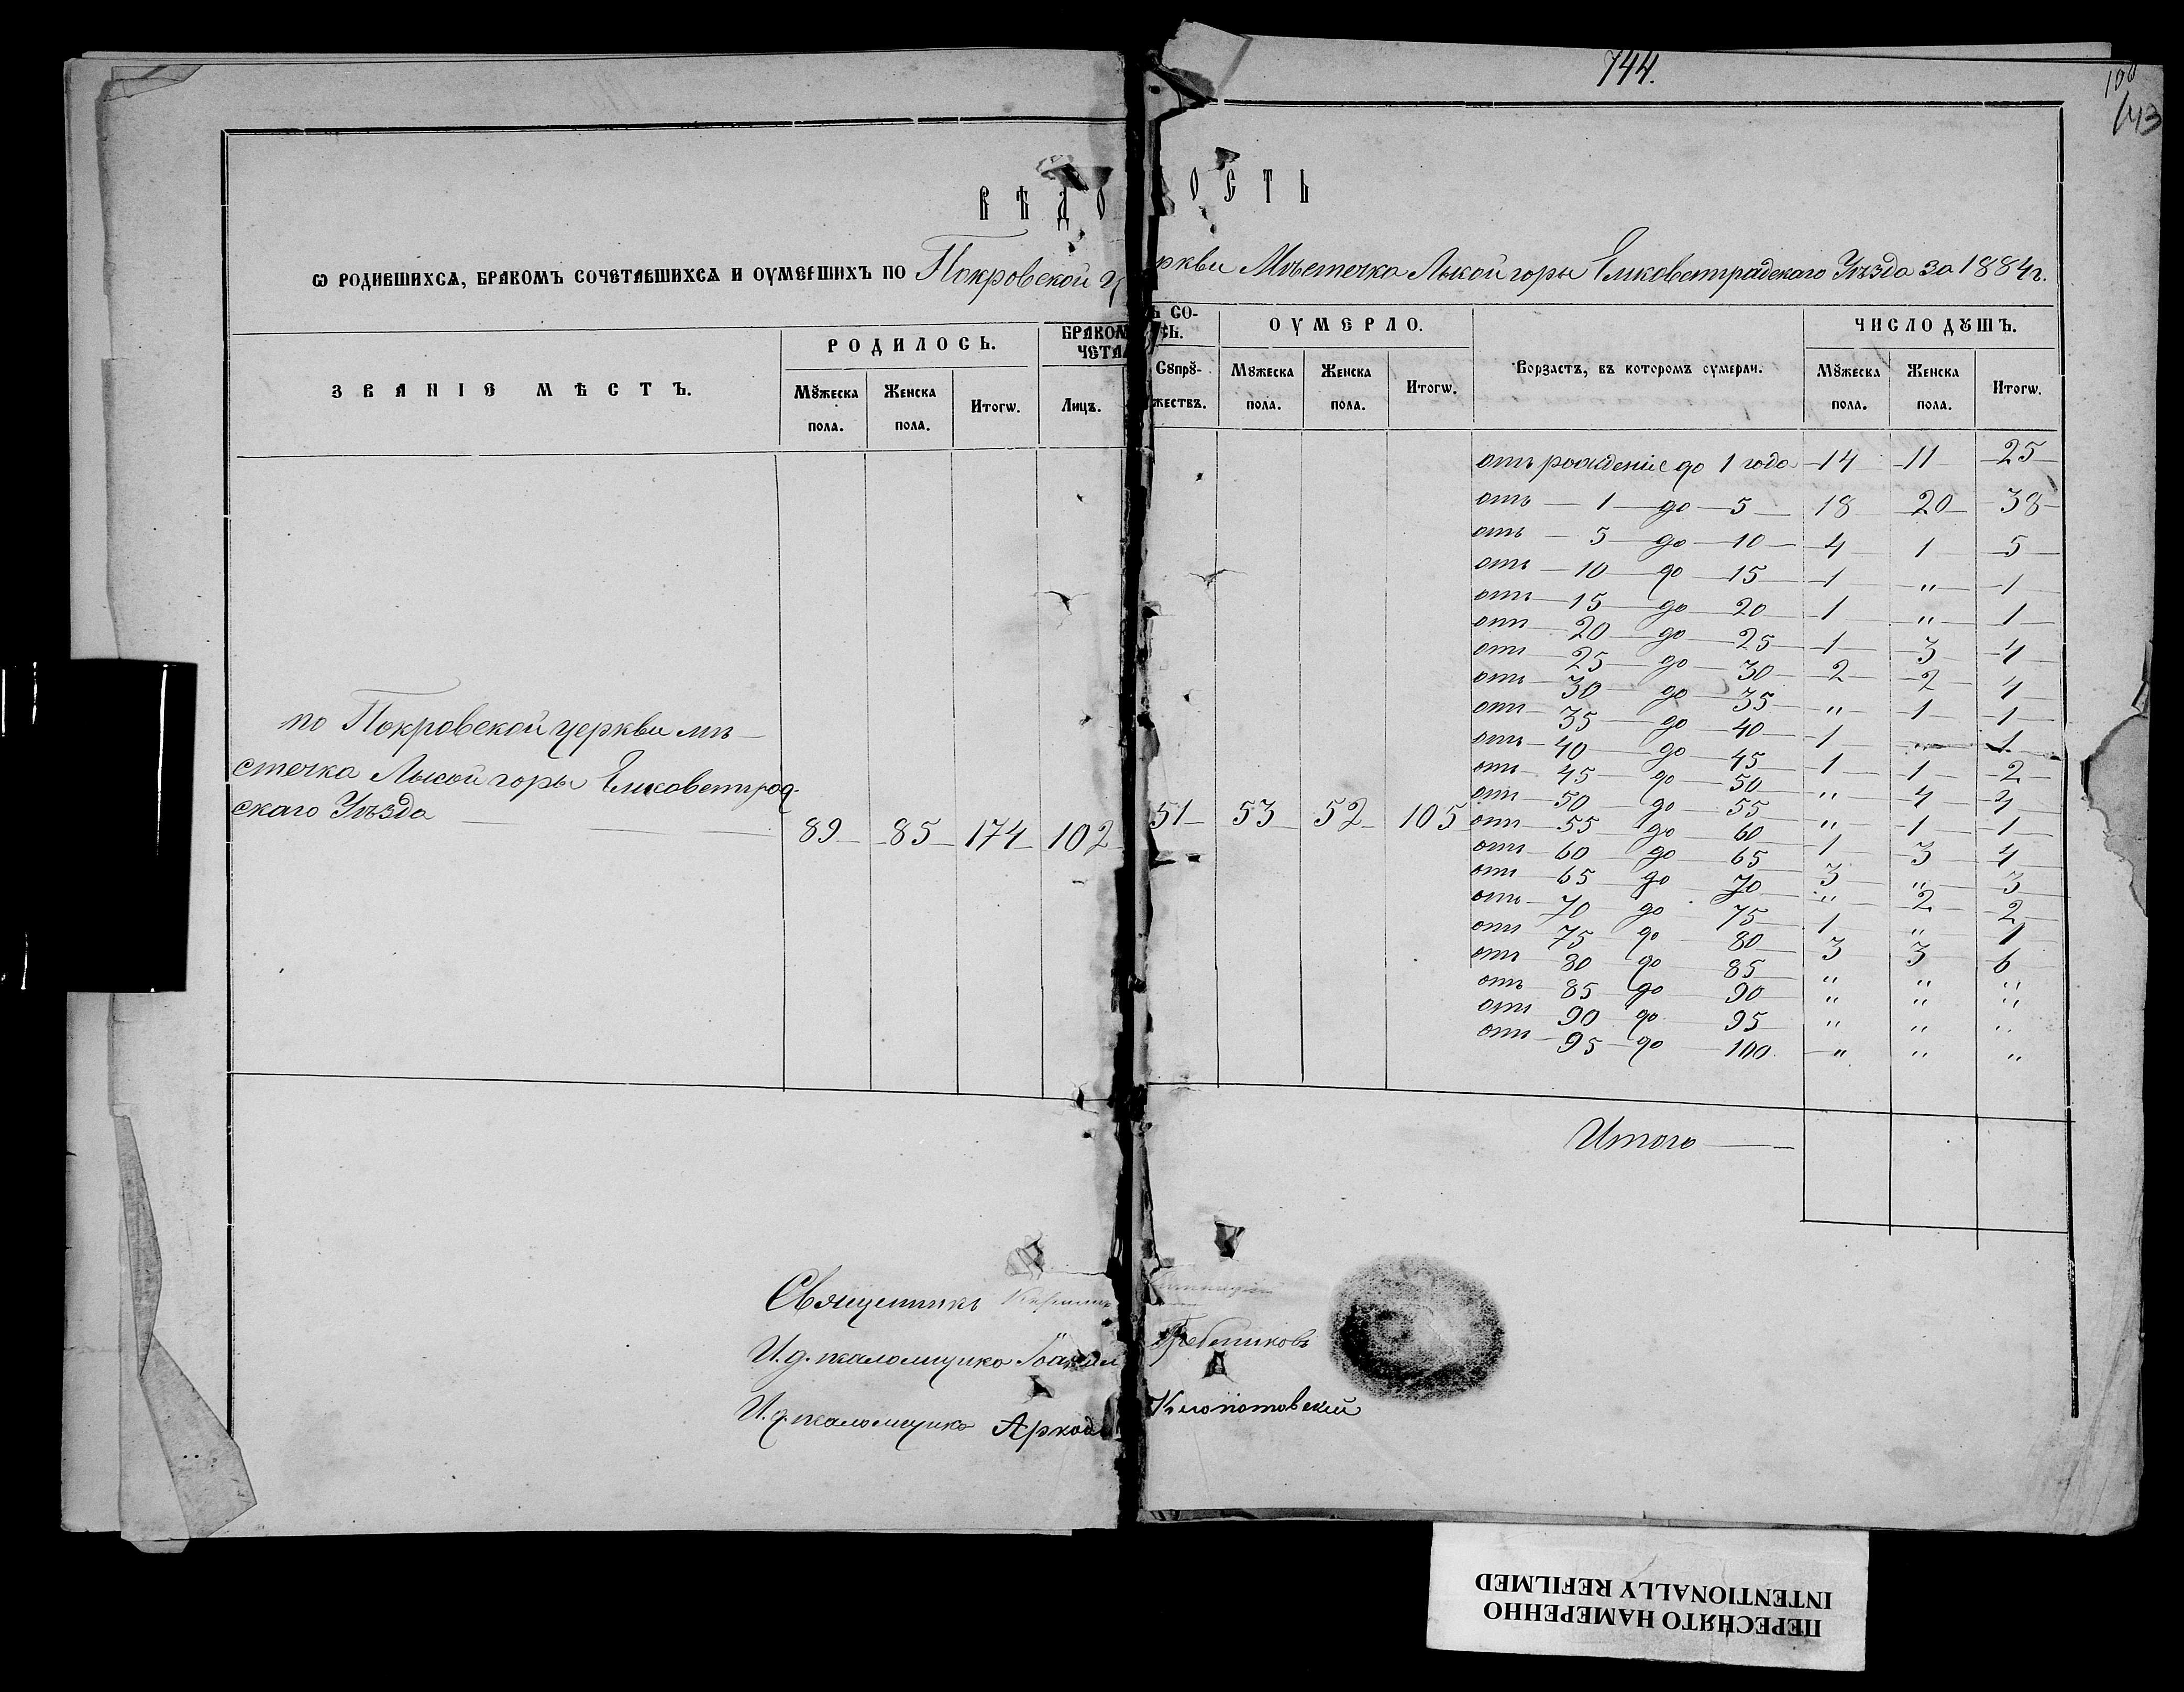 744.
100
143
ВѢДО ОСТЬ
Ѡ РОДИВШИХСѦ, БРАКОМЪ СОЧЕТАВШИХСѦ И ОУМЕРШИХЪ ПО Покровской церкви Мѣстечка Лысой горы Елисаветградскаго Уѣзда за 1884 г.
ЗВАНІЕ МѢСТЪ.
РОДИЛОСЬ.
БРАКОМЪ СО-
ЧЕТАЛ СЬ.
ОУМЕРЛО.
Возрастъ, въ которомъ оумерли.
ЧИСЛО ДꙊШЪ.
Мꙋжеска пола.
Женска пола.
Итогѡ.
Лицъ.
Сꙋпрꙋ-
жествъ.
Мꙋжеска пола.
Женска пола.
Итогѡ.
Мꙋжеска пола.
Женска пола.
Итогѡ.
по Покровской церкви мѣ-
стечка Лысой горы Елисаветград-
скаго Уѣзда — 89 — 85 — 174 — 102 51 — 53 — 52 — 105
отъ рожденіе до 1 года — 14 — 11 — 25
отъ — 1 — до — 5 — 18 — 20 — 38
отъ — 5 — до — 10 — 4 — 1 — 5
отъ — 10 — до — 15 — 1 — " — 1
отъ — 15 — до — 20 — 1 — " — 1
отъ — 20 — до — 25 — 1 — 3 — 4
отъ — 25 — до — 30 — 2 — 2 — 4
отъ — 30 — до — 35 — " — 1 — 1
отъ — 35 — до — 40 — 1 — " — 1
отъ — 40 — до — 45 — 1 — 1 — 2
отъ — 45 — до — 50 — " — 4 — 4
отъ — 50 — до — 55 — " — 1 — 1
отъ — 55 — до — 60 — 1 — 3 — 4
отъ — 60 — до — 65 — 3 — " — 3
отъ — 65 — до — 70 — " — 2 — 2
отъ — 70 — до — 75 — 1 — " — 1
отъ — 75 — до — 80 — 3 — 3 — 6
отъ — 80 — до — 85 — " — " — "
отъ — 85 — до — 90 — " — " — "
отъ — 90 — до — 95 — " — " — "
отъ — 95 — до — 100 — " — " — "
Итого —
Священникъ
И. д. псаломщика Іоаким Гребениковъ
И. д. псаломщика Аркад Клопотовскій
ПЕРЕСНЯТО НАМЕРЕННО
INTENTIONALLY REFILMED